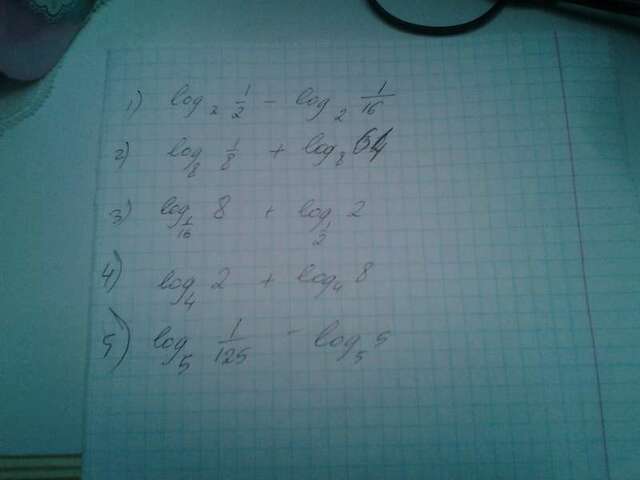 1) log₂ 1/2 - log₂ 1/16
2) log₈ 1/8 + log₈ 64
3) log_1/16 8 + log_1/2 2
4) log₄ 2 + log₄ 8
5) log₅ 1/125 - log₅ 5